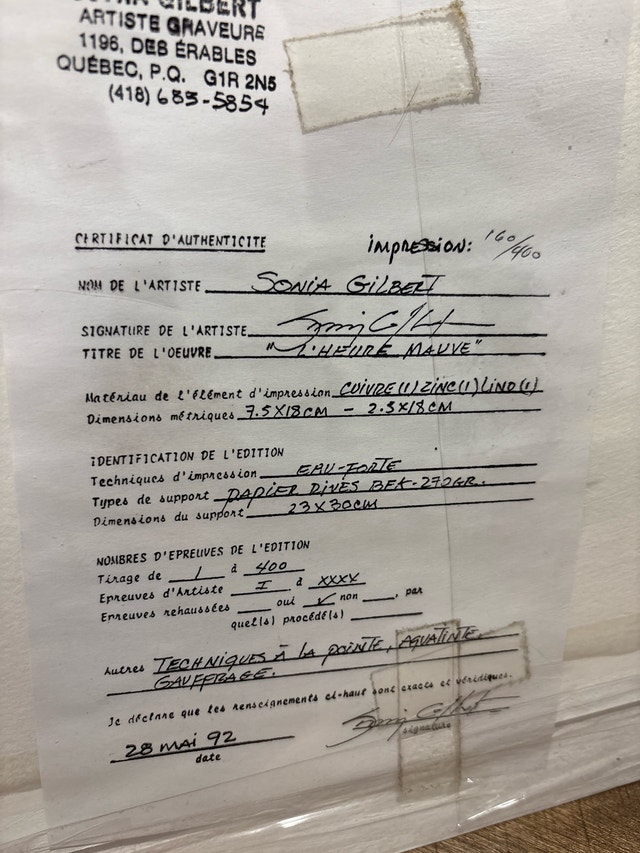 GILBERT
ARTISTE GRAVEURE
1196, DES ÉRABLES
QUÉBEC, P.Q. G1R 2N5
(418) 683-5854
CERTIFICAT D'AUTHENTICITE
impression: 160/400
NOM DE L'ARTISTE SONIA GILBERT
SIGNATURE DE L'ARTISTE
TITRE DE L'OEUVRE "L'HEURE MAUVE"
Matériau de l'élément d'impression CUIVRE(1) ZINC(1) LINO(1)
Dimensions métriques 7.5X18CM - 2.5X18CM
IDENTIFICATION DE L'EDITION
Techniques d'impression EAU-FORTE
Types de support PAPIER RIVES BFK-270GR.
Dimensions du support 23X30CM
NOMBRES D'EPREUVES DE L'EDITION
Tirage de 1 à 400
Epreuves d'Artiste I à XXXX
Epreuves rehaussées oui ✓ non , par
quel(s) procédé(s)
Autres TECHNIQUES À LA POINTE, AQUATINTE,
GAUFFRAGE.
Je déclare que les renseignements ci-haut sont exacts et véridiques.
28 MAI 92
date signature